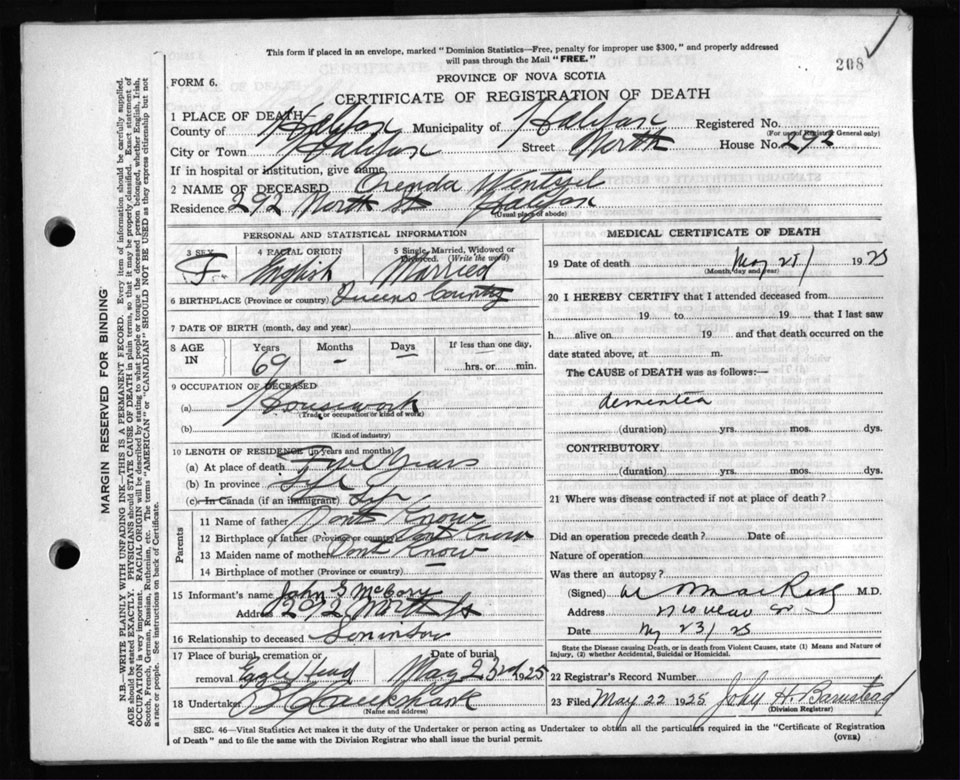 This form if placed in an envelope, marked "Dominion Statistics—Free, penalty for improper use $300," and properly addressed
will pass through the Mail "FREE."
208
FORM 6.
PROVINCE OF NOVA SCOTIA
CERTIFICATE OF REGISTRATION OF DEATH
1 PLACE OF DEATH
County of Halifax Municipality of Halifax Registered No.
(For use of Registrar General only)
City or Town Halifax Street North House No. 292
If in hospital or institution, give name
2 NAME OF DECEASED Orenda Wentzel
Residence 292 North St Halifax
(Usual place of abode)
PERSONAL AND STATISTICAL INFORMATION
3 SEX 4 RACIAL ORIGIN 5 Single, Married, Widowed or Divorced. (Write the word)
F English Married
6 BIRTHPLACE (Province or country) Queens County
7 DATE OF BIRTH (month, day and year)
8 AGE IN Years Months Days If less than one day,
69 — — hrs. or min.
9 OCCUPATION OF DECEASED
(a) Housework
(Trade or occupation or kind of work)
(b)
(Kind of industry)
10 LENGTH OF RESIDENCE (in years and months)
(a) At place of death Five Years
(b) In province Life
(c) In Canada (if an immigrant) Life
Parents
11 Name of father Dont Know
12 Birthplace of father (Province or country) Dont Know
13 Maiden name of mother Dont Know
14 Birthplace of mother (Province or country) —
15 Informant's name John S McCory
Address 292 North St
16 Relationship to deceased Soninlaw
17 Place of burial, cremation or removal Date of burial
May 23rd 1925
18 Undertaker
(Name and address)
MEDICAL CERTIFICATE OF DEATH
19 Date of death May 21/ 1925
(Month, day and year)
20 I HEREBY CERTIFY that I attended deceased from
19 to 19 that I last saw
h alive on 19 and that death occurred on the
date stated above, at m.
The CAUSE of DEATH was as follows:—
dementea
(duration) yrs. mos. dys.
CONTRIBUTORY
(duration) yrs. mos. dys.
21 Where was disease contracted if not at place of death?
Did an operation precede death? Date of
Nature of operation
Was there an autopsy?
(Signed) M.D.
Address
Date My 23/25
State the Disease causing Death, or in death from Violent Causes, state (1) Means and Nature of
Injury, (2) whether Accidental, Suicidal or Homicidal.
22 Registrar's Record Number
23 Filed May 22 1925 John H. Barnstead
(Division Registrar)
SEC. 46—Vital Statistics Act makes it the duty of the Undertaker or person acting as Undertaker to obtain all the particulars required in the "Certificate of Registration
of Death" and to file the same with the Division Registrar who shall issue the burial permit.
(OVER)
MARGIN RESERVED FOR BINDING
N.B.—WRITE PLAINLY WITH UNFADING INK—THIS IS A PERMANENT RECORD. Every item of information should be carefully supplied.
AGE should be stated EXACTLY. PHYSICIANS should STATE CAUSE OF DEATH in plain terms, so that it may be properly classified. Exact statement of
OCCUPATION is very important. RACIAL ORIGIN will be described by stating to what people or tongue the deceased person belonged, whether English, Irish,
Scotch, French, German, Russian, Ruthenian, etc. The terms "AMERICAN" or "CANADIAN" SHOULD NOT BE USED as they express citizenship but not
a race or people. See instructions on back of Certificate.